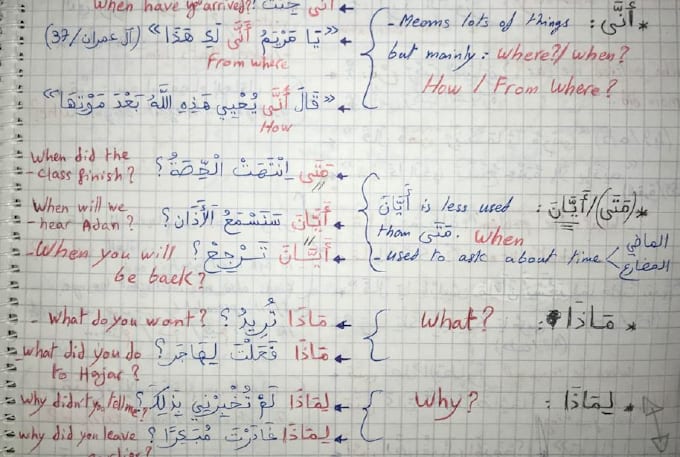 When have you arrived? أَنَّى جِئْتَ
* أَنَّى : - Means lots of things
but mainly : Where?/ when?
How / From Where?
« يَا مَرْيَمُ أَنَّى لَكِ هَذَا » (آل عمران/37)
From where
« قَالَ أَنَّى يُحْيِي هَذِهِ اللَّهُ بَعْدَ مَوْتِهَا »
How
* (مَتَى)/أَيَّانَ : أَيَّانَ is less used
than مَتَى. When
- used to ask about time < الماضي
المضارع
مَتَى اِنْتَهَتْ الْحِصَّةُ؟ When did the
- class finish?
أَيَّانَ سَنَسْمَعُ الْأَذَان؟ When will we
- hear Adan?
أَيَّانَ تَرْجِعْ؟ - When you will
be back?
* مَاذَا : What?
مَاذَا تُرِيدُ؟ - What do you want?
مَاذَا فَعَلْتَ لِهَاجَر؟ - what did you do
to Hajar?
* لِمَاذَا : Why?
لِمَاذَا لَمْ تُخْبِرْنِي بِذَلِكَ؟ why didn't you tell me?
لِمَاذَا غَادَرْتَ مُبَكِّرًا؟ why did you leave